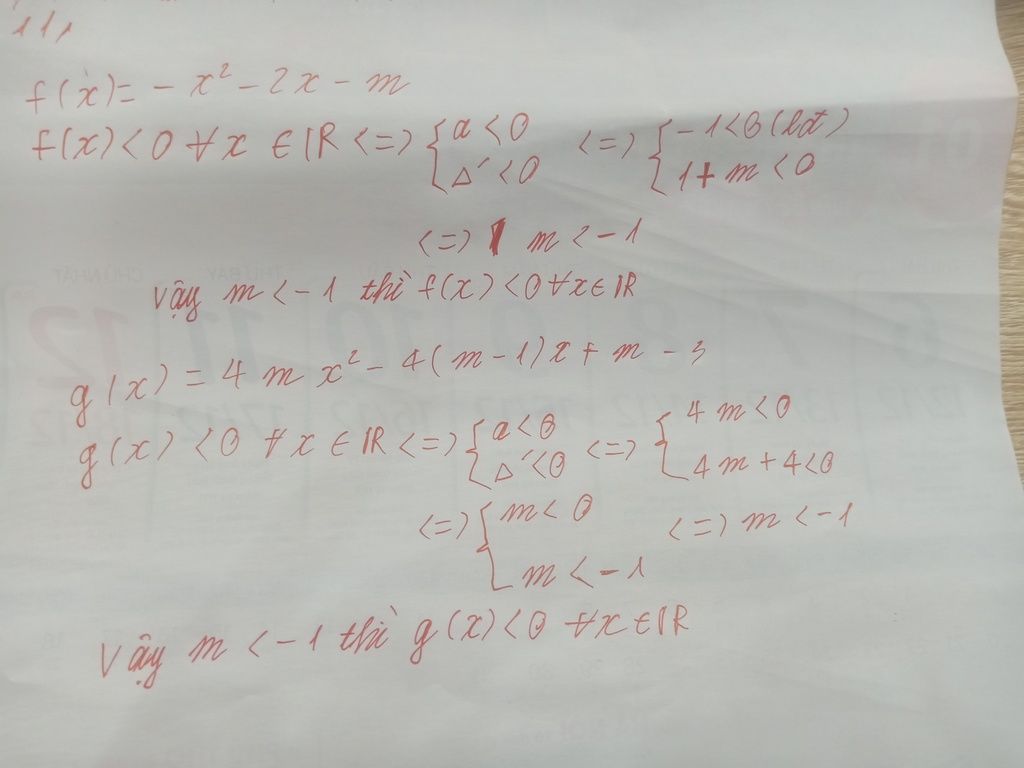 111
f(x) = - x² - 2x - m
f(x) < 0 ∀x ∈ IR <=> { a < 0 <=> { -1 < 0 (lđ)
Δ' < 0 1 + m < 0
<=> m < -1
Vậy m < -1 thì f(x) < 0 ∀x ∈ IR
g(x) = 4 m x² - 4(m-1)x + m - 3
g(x) < 0 ∀x ∈ IR <=> { a < 0 <=> { 4m < 0
Δ' < 0 4m + 4 < 0
<=> { m < 0 <=> m < -1
m < -1
Vậy m < -1 thì g(x) < 0 ∀x ∈ IR